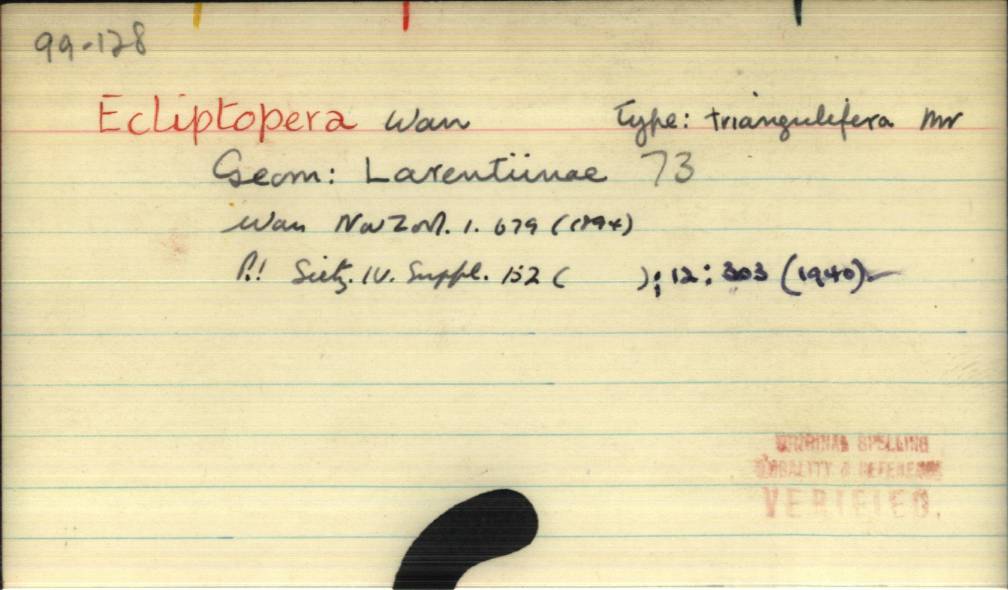 99-128
Ecliptopera Warr Type: triangulifera Mr
Geom: Larentiinae 73
Warr Nov Zool. 1. 679 (1894)
P.! Seitz. IV. Suppl. 152 ( ); 12: 303 (1940).
ORIGINAL SPELLING
LOCALITY & REFERENCE
VERIFIED.